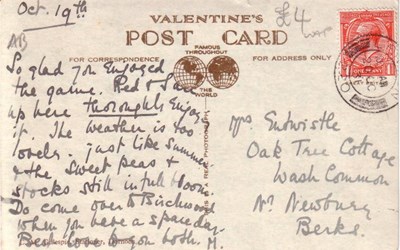 Oct. 19th
AB
£4
VALENTINE'S
POST CARD
FAMOUS
THROUGHOUT
THE WORLD
FOR CORRESPONDENCE
FOR ADDRESS ONLY
ONE PENNY
So glad you Enjoyed
the game. Red &
up here thoroughly Enjoy
it. The weather is too
lovely. just like Summer
& the Sweet peas &
stocks still in full bloom.
Do come over to Birchwood
when you have a spare day.
Best love from both. M.
REAL PHOTOGRAPH
Mrs Entwistle
Oak Tree Cottage
Wash Common
Nr. Newbury
Berks.